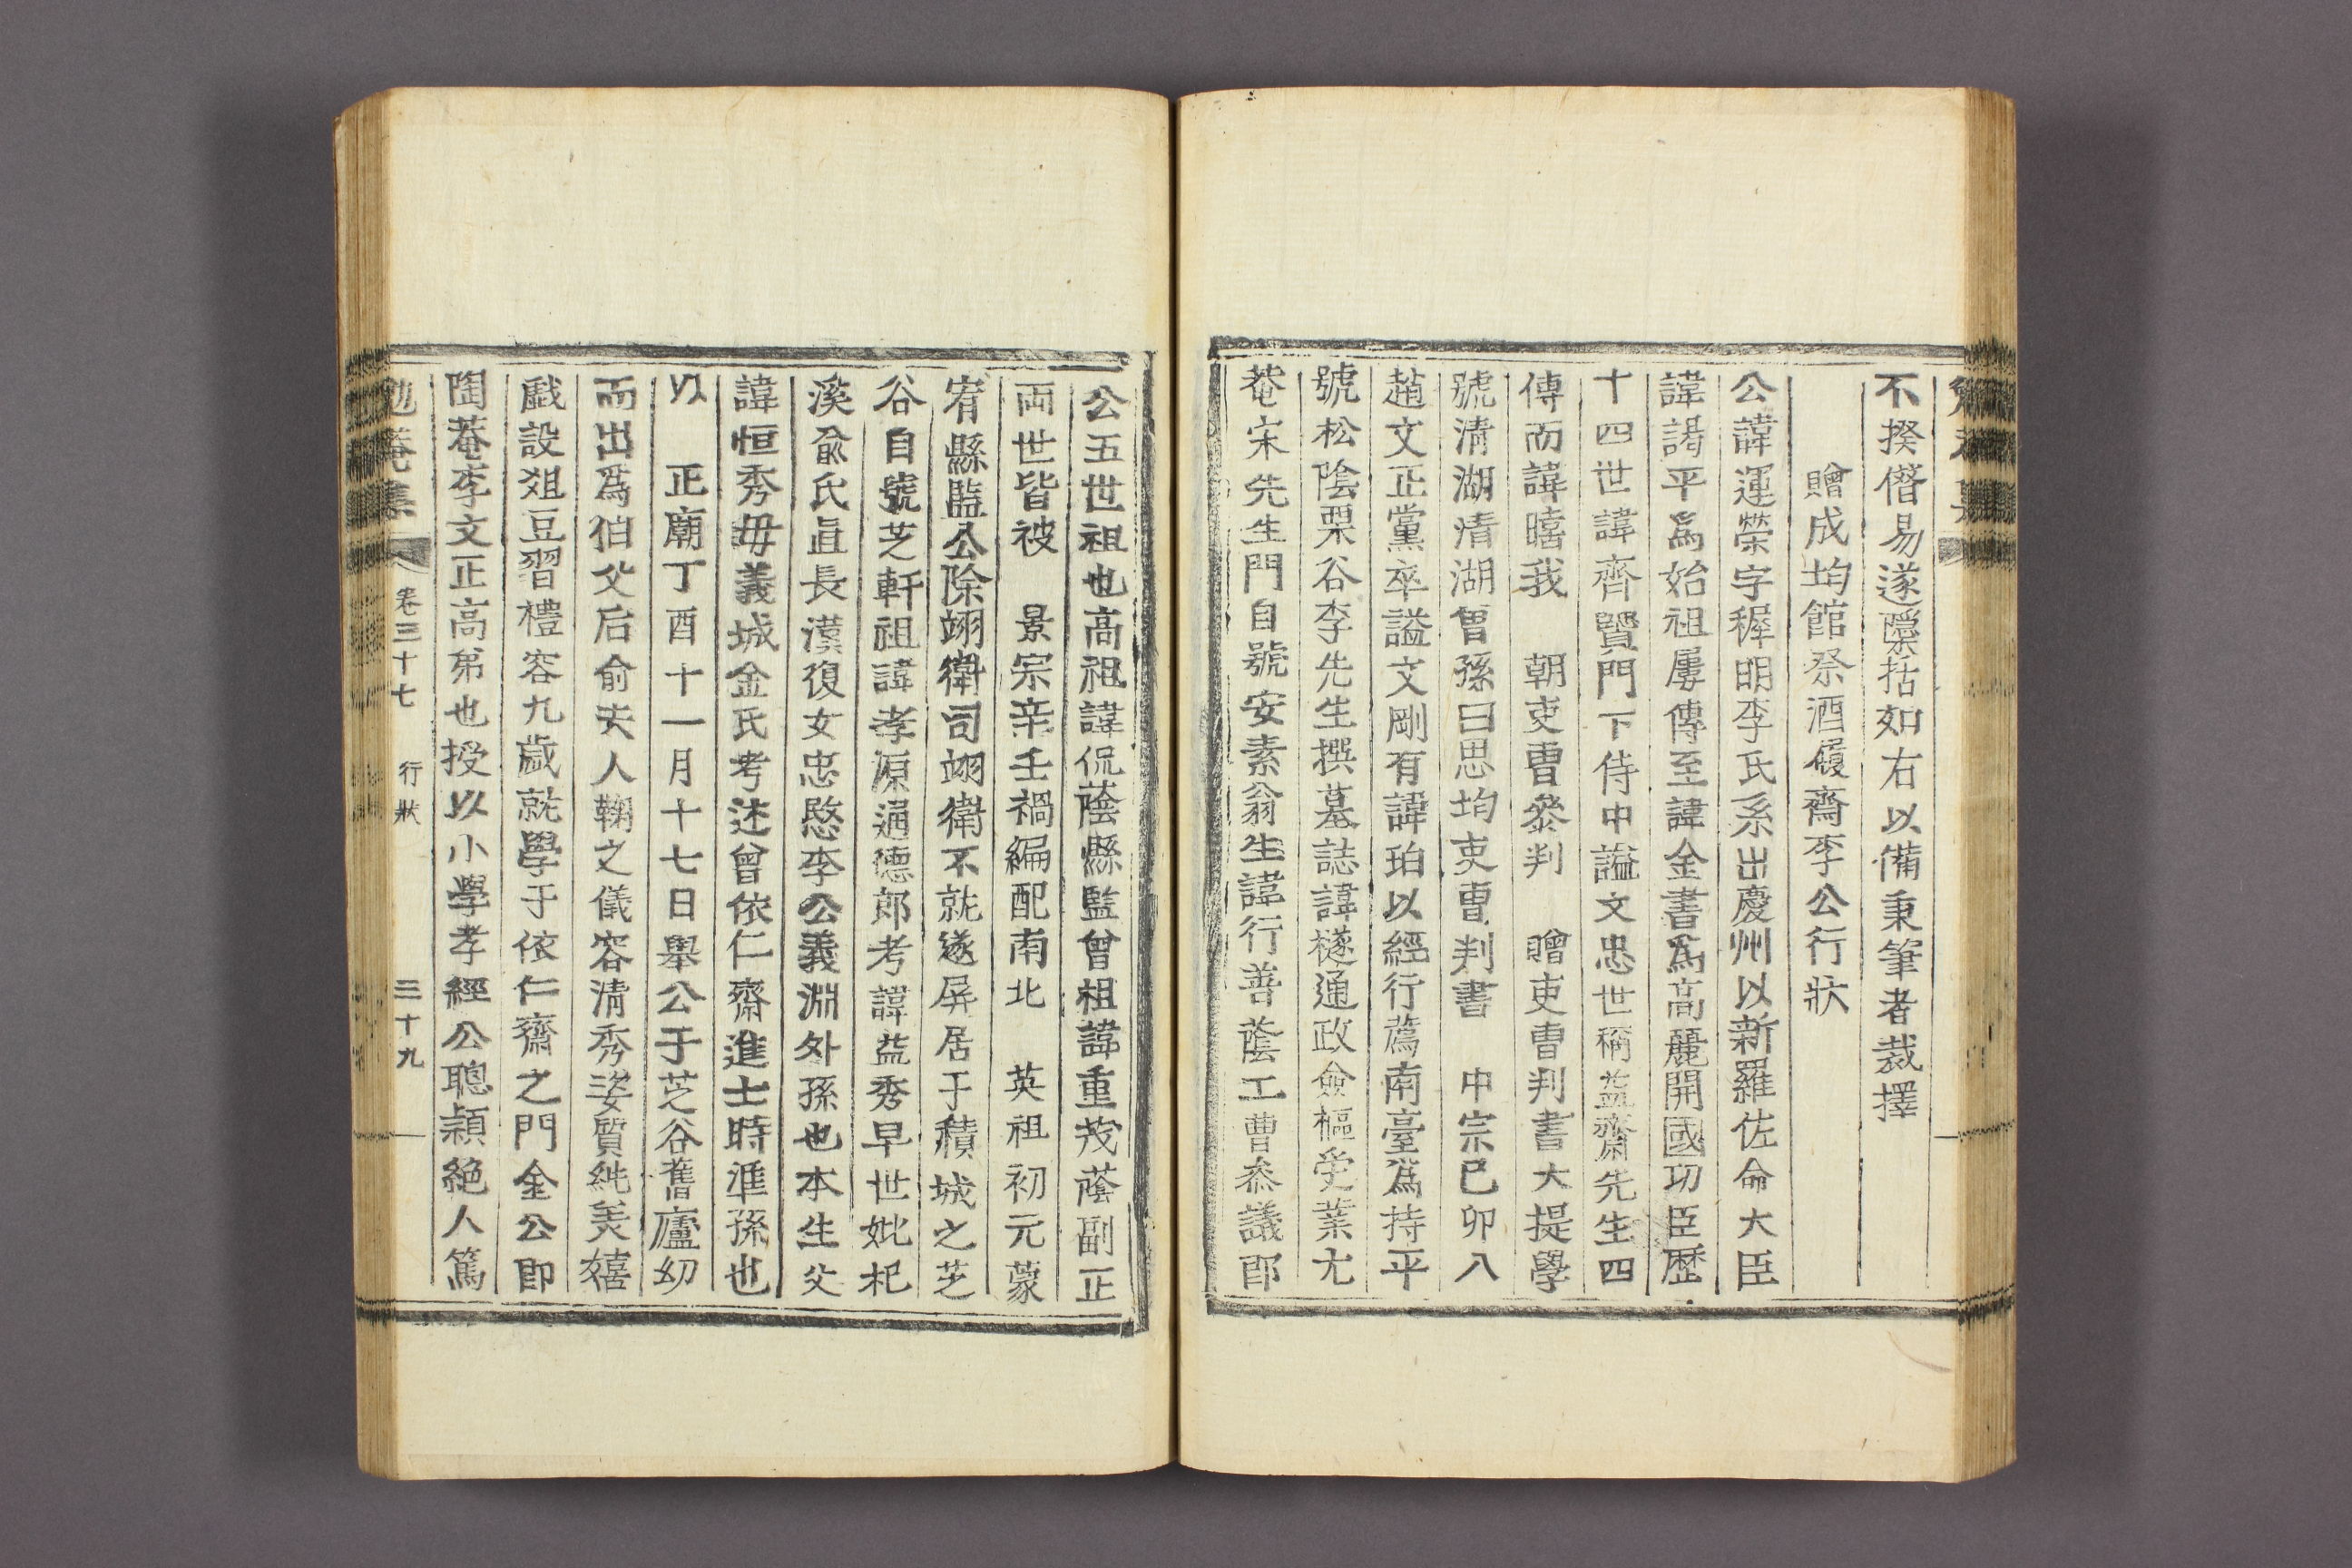 不揆僭易遂檃括如右以備秉筆者裁擇
贈成均館祭酒履齋李公行狀
公諱運榮字穉明李氏系出慶州以新羅佐命大臣
諱謁平爲始祖屢傳至諱金書爲高麗開國功臣歷
十四世諱齊賢門下侍中謚文忠世稱益齋先生四
傳而諱暿我 朝吏曹叅判 贈吏曹判書大提學
號淸湖淸湖曾孫曰思均吏曹判書 中宗己卯八
趙文正黨卒謚文剛有諱珀以經行薦南臺爲持平
號松陰栗谷李先生撰墓誌諱檖通政僉樞受業尤
菴宋先生門自號安素翁生諱行善蔭工曹叅議卽
公五世祖也高祖諱侃蔭縣監曾祖諱重茂蔭副正
両世皆被 景宗辛壬禍編配南北 英祖初元蒙
宥縣監公除翊衛司翊衛不就遂屛居于積城之芝
谷自號芝軒祖諱孝源通德郞考諱益秀早世妣杞
溪兪氏直長漢復女忠愍李公義淵外孫也本生父
諱恒秀毋義城金氏考述曾依仁齋進士時準孫也
以 正廟丁酉十一月十七日舉公于芝谷舊廬幼
而出爲伯父后俞夫人鞠之儀容淸秀姿質純美嬉
戱設俎豆習禮容九歲就學于依仁齋之門金公卽
陶菴李文正高弟也授以小學孝經公聰穎絶人篤
勉菴集 卷三十七 行狀 三十九